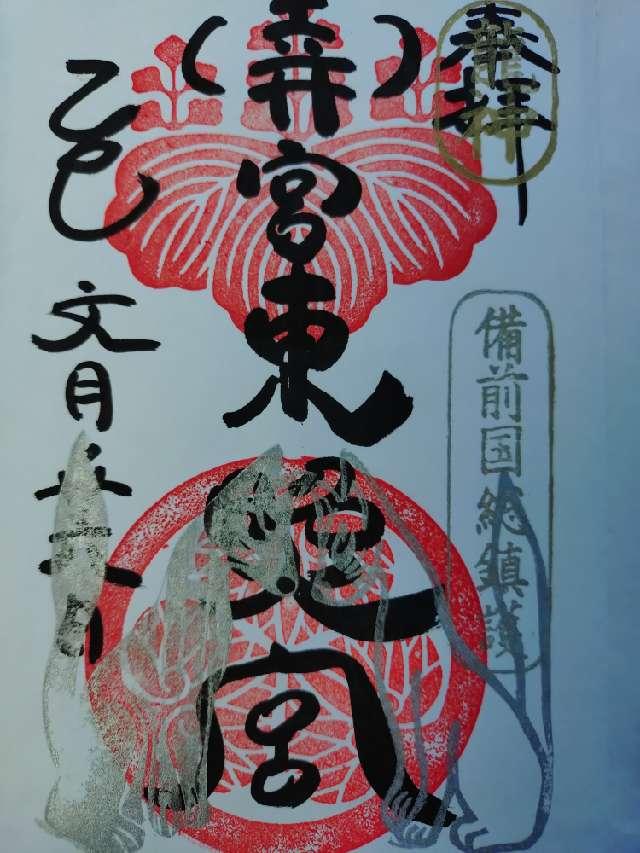 奉拝
龍神
備前国総鎮護
玉井宮東照宮
乙巳 文月廿六日